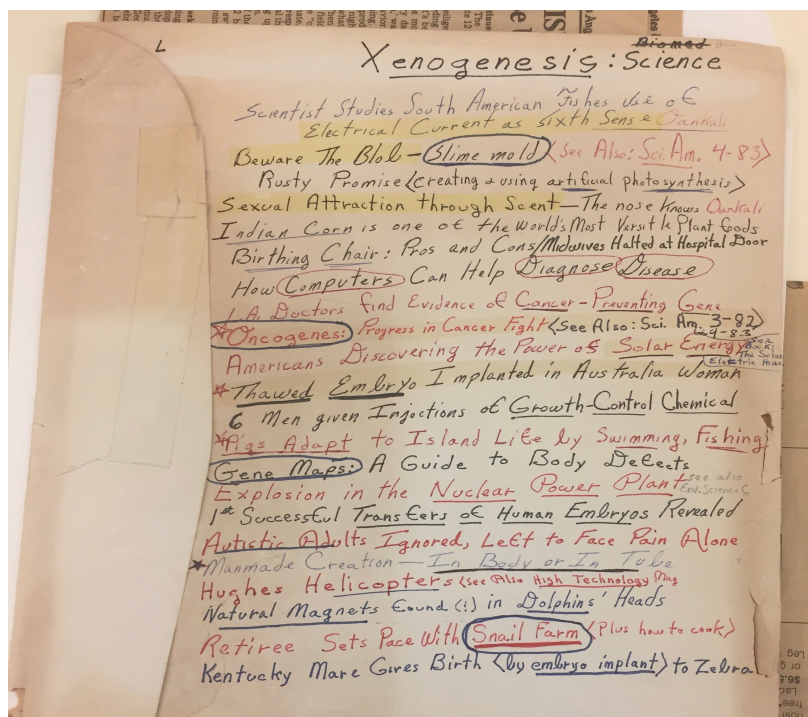 L
Biomed
Xenogenesis: Science
Scientist Studies South American Fishes Use of
Electrical Current as Sixth Sense Oankali
Beware The Blob — Slime mold <See Also: Sci. Am. 4-83>
Rusty Promise <creating & using artificial photosynthesis>
Sexual Attraction through Scent — The nose knows Oankali
Indian Corn is one of the World's Most Versitle Plant foods
Birthing Chair: Pros and Cons/Midwives Halted at Hospital Door
How Computers Can Help Diagnose Disease
L.A. Doctors find Evidence of Cancer-Preventing Gene
*Oncogenes: Progress in Cancer Fight <See Also: Sci. Am. 3-82>
4-83
Americans Discovering the Power of Solar Energy See
Book:
The Solar
Electric House
*Thawed Embryo Implanted in Australia Woman
6 Men given Injections of Growth-Control Chemical
*Pigs Adapt to Island Life by Swimming, Fishing
Gene Maps: A Guide to Body Defects
Explosion in the Nuclear Power Plant see also
Env. Science
1st Successful Transfers of Human Embryos Revealed
Autistic Adults Ignored, Left to Face Pain Alone
*Manmade Creation — In Body or In Tube
Hughes Helicopters (see Also High Technology Mag
Natural Magnets found (!) in Dolphins' Heads
Retiree Sets Pace With Snail Farm <Plus how to cook>
Kentucky Mare Gives Birth <by embryo implant> to Zebra